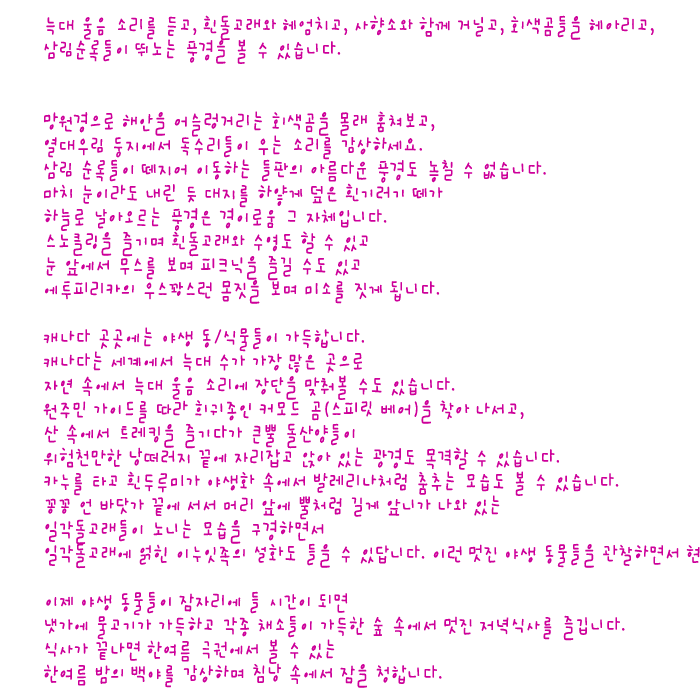 늑대 울음 소리를 듣고, 흰돌고래와 헤엄치고, 사향소와 함께 거닐고, 회색곰들을 헤아리고,
삼림순록들이 뛰노는 풍경을 볼 수 있습니다.
망원경으로 해안을 어슬렁거리는 회색곰을 몰래 훔쳐보고,
열대우림 둥지에서 독수리들이 우는 소리를 감상하세요.
삼림 순록들이 떼지어 이동하는 들판의 아름다운 풍경도 놓칠 수 없습니다.
마치 눈이라도 내린 듯 대지를 하얗게 덮은 흰기러기 떼가
하늘로 날아오르는 풍경은 경이로움 그 자체입니다.
스노클링을 즐기며 흰돌고래와 수영도 할 수 있고
눈 앞에서 무스를 보며 피크닉을 즐길 수도 있고
에투피리카의 우스꽝스런 몸짓을 보며 미소를 짓게 됩니다.
캐나다 곳곳에는 야생 동/식물들이 가득합니다.
캐나다는 세계에서 늑대 수가 가장 많은 곳으로
자연 속에서 늑대 울음 소리에 장단을 맞춰볼 수도 있습니다.
원주민 가이드를 따라 희귀종인 커모드 곰(스피릿 베어)을 찾아 나서고,
산 속에서 트레킹을 즐기다가 큰뿔 돌산양들이
위험천만한 낭떠러지 끝에 자리잡고 앉아 있는 광경도 목격할 수 있습니다.
카누를 타고 흰두루미가 야생화 속에서 발레리나처럼 춤추는 모습도 볼 수 있습니다.
꽁꽁 언 바닷가 끝에 서서 머리 앞에 뿔처럼 길게 앞니가 나와 있는
일각돌고래들이 노니는 모습을 구경하면서
일각돌고래에 얽힌 이누잇족의 설화도 들을 수 있답니다. 이런 멋진 야생 동물들을 관찰하면서 현
이제 야생 동물들이 잠자리에 들 시간이 되면
냇가에 물고기가 가득하고 각종 채소들이 가득한 숲 속에서 멋진 저녁식사를 즐깁니다.
식사가 끝나면 한여름 극권에서 볼 수 있는
한여름 밤의 백야를 감상하며 침낭 속에서 잠을 청합니다.